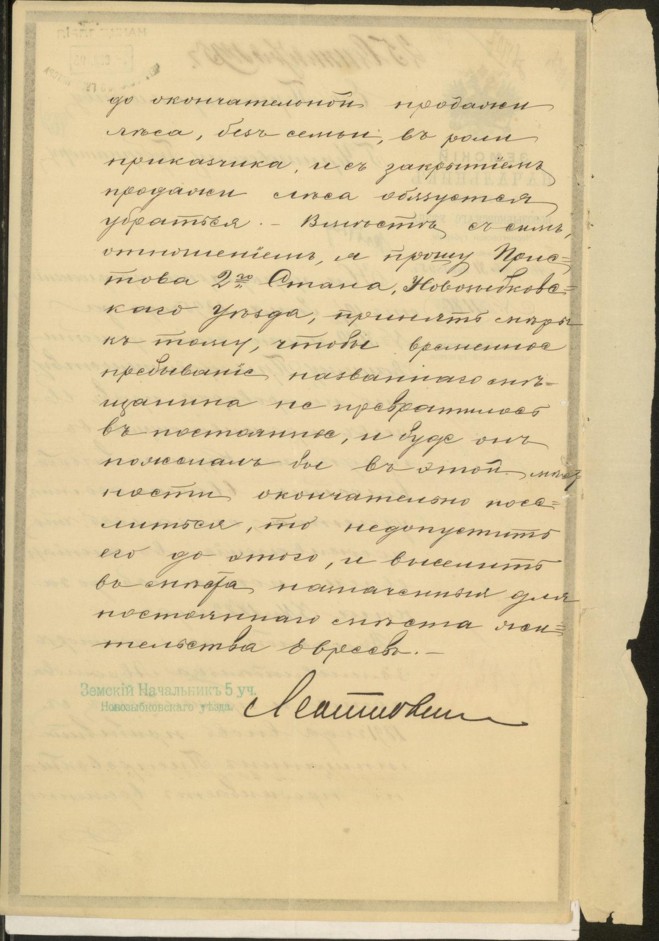 до окончательной продажи
лѣса, безъ семьи, въ роли
приказчика, и съ закрытіемъ
продажи лѣса обязуется
убраться. – Вмѣстѣ съ симъ,
отношеніемъ, я прошу Прис=
това 2го Стана, Новозыбковс=
каго Уѣзда, принять мѣры
къ тому, чтобы временное
пребываніе названнаго мѣ-
щанина не превратилось
въ постоянное, и буде онъ
пожелалъ бы въ этой мѣст
ности окончательно посе=
литься, то недопустить
его до этого, и выселить
въ мѣста назначенныя для
постояннаго мѣста жи=
тельства Евреевъ. –
Земскій Начальникъ 5 уч.
Новозыбковскаго уѣзда.